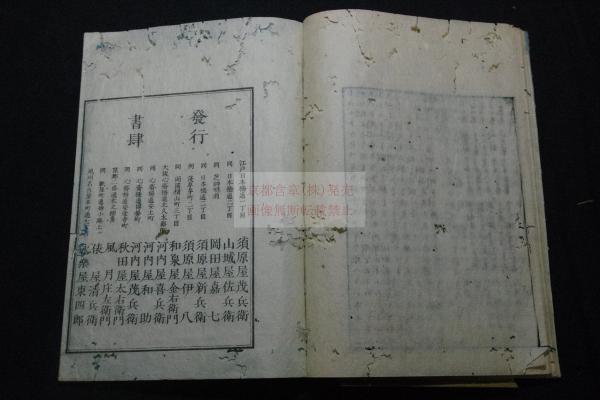 發行
書肆
江戸日本橋通一丁目 須原屋茂兵衛
同 日本橋通二丁目 山城屋佐兵衛
同 芝神明前 岡田屋嘉七
同 日本橋通二丁目 須原屋新兵衛
同 浅草茅町二丁目 須原屋伊八
同 両國横山町三丁目 和泉屋金右衛門
大阪心斎橋通北久太郎町 河内屋喜兵衛
同 心斎橋通安土町 河内屋和助
同 心斎橋通博労町 河内屋茂兵衛
同 心斎橋通安堂寺町 秋田屋太右衛門
京都二条通衣之棚 風月庄左衛門
俵屋清兵衛
尾州名古屋本町通七丁目 永樂屋東四郎
京都含章(株)発売
画像無断転載禁止